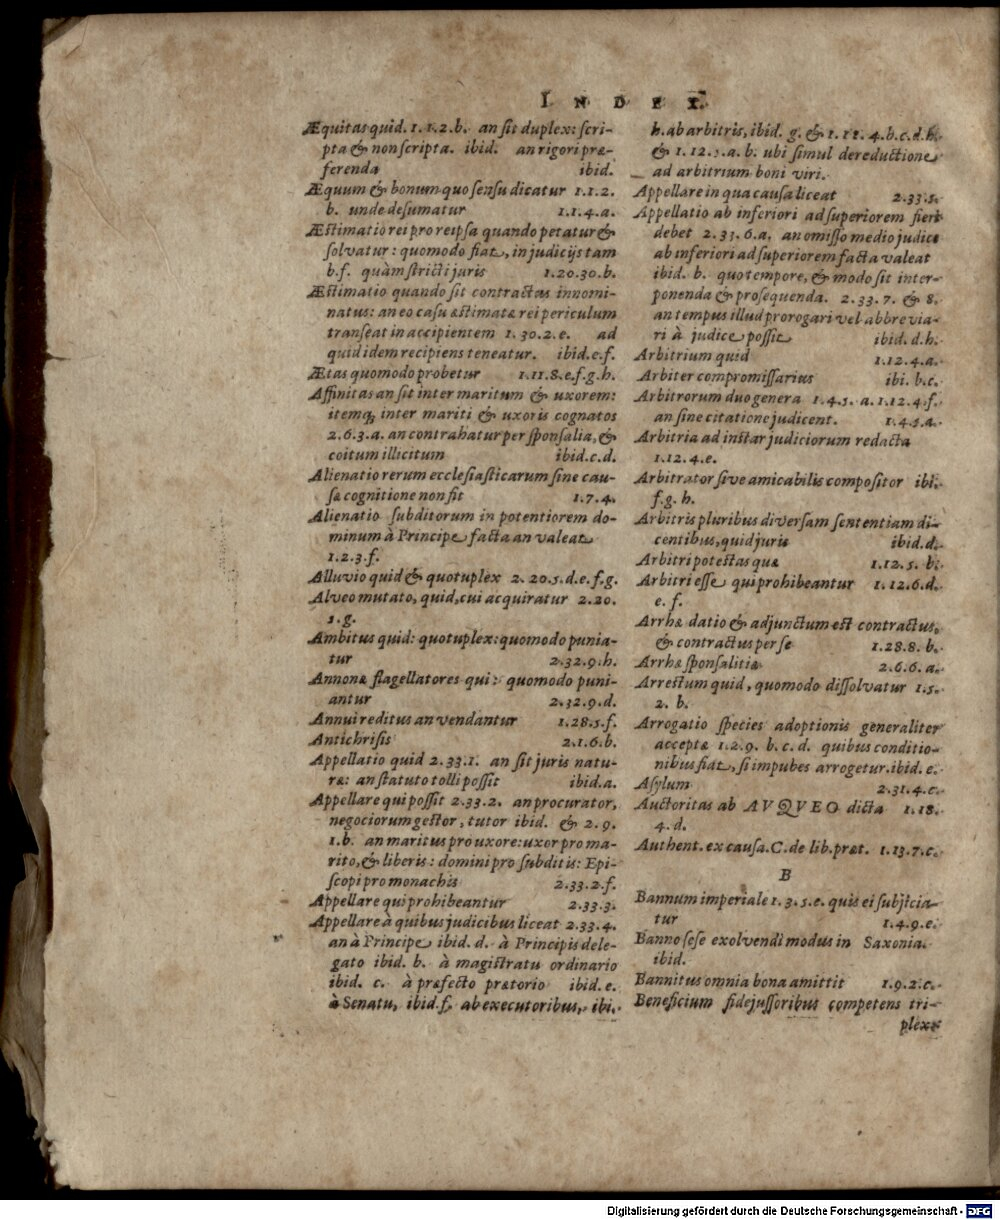 INDEX.
Æquitas quid. 1. 1. 2. b. an sit duplex: scri-
pta & non scripta. ibid. an rigori præ-
ferenda ibid.
Æquum & bonum quo sensu dicatur 1. 1. 2.
b. unde desumatur 1. 1. 4. a.
Æstimatio rei pro re ipsa quando petatur &
solvatur: quomodo fiat, in judicijs tam
b. f. quàm stricti juris 1. 20. 30. b.
Æstimatio quando sit contractus innomi-
natus: an eo casu æstimatæ rei periculum
transeat in accipientem 1. 30. 2. e. ad
quid idem recipiens teneatur. ibid. e. f.
Ætas quomodo probetur 1. 11. 8. e. f. g. h.
Affinitas an sit inter maritum & uxorem:
itemq; inter mariti & uxoris cognatos
2. 6. 3. a. an contrahatur per sponsalia, &
coitum illicitum ibid. c. d.
Alienatio rerum ecclesiasticarum sine cau-
sæ cognitione non fit 1. 7. 4.
Alienatio subditorum in potentiorem do-
minum à Principe facta an valeat
1. 2. 3. f.
Alluvio quid & quotuplex 2. 20. 5. d. e. f. g.
Alveo mutato, quid, cui acquiratur 2. 20.
5. g.
Ambitus quid: quotuplex: quomodo punia-
tur 2. 32. 9. h.
Annonæ flagellatores qui: quomodo puni-
antur 2. 32. 9. d.
Annui reditus an vendantur 1. 28. 5. f.
Antichrisis 2. 1. 6. b.
Appellatio quid 2. 33. 1. an sit juris natu-
ræ: an statuto tolli possit ibid. a.
Appellare qui possit 2. 33. 2. an procurator,
negociorum gestor, tutor ibid. & 2. 9.
1. b. an maritus pro uxore: uxor pro ma-
rito, & liberis: domini pro subditis: Epi-
scopi pro monachis 2. 33. 2. f.
Appellare qui prohibeantur 2. 33. 3.
Appellare à quibus judicibus liceat 2. 33. 4.
an à Principe ibid. d. à Principis dele-
gato ibid. b. à magistratu ordinario
ibid. c. à præfecto prætorio ibid. e.
à Senatu, ibid. f. ab executoribus, ibi.
h. ab arbitris, ibid. g. & 1. 11. 4. b. c. d. h.
& 1. 12. 5. a. b. ubi simul de reductione
ad arbitrium boni viri.
Appellare in qua causa liceat 2. 33. 5.
Appellatio ab inferiori ad superiorem fieri
debet 2. 33. 6. a. an omisso medio judice
ab inferiori ad superiorem facta valeat
ibid. b. quo tempore, & modo sit inter-
ponenda & prosequenda. 2. 33. 7. & 8.
an tempus illud prorogari vel abbrevia-
ri à judice possit ibid. d. h.
Arbitrium quid 1. 12. 4. a.
Arbiter compromissarius ibi. b. c.
Arbitrorum duo genera 1. 4. 5. a. 1. 12. 4. f.
an sine citatione judicent. 1. 4. 5. a.
Arbitria ad instar judiciorum redacta
1. 12. 4. e.
Arbitrator sive amicabilis compositor ibi.
f. g. h.
Arbitris pluribus diversam sententiam di-
centibus, quid juris ibid. d.
Arbitri potestas quæ 1. 12. 5. b.
Arbitri esse qui prohibeantur 1. 12. 6. d.
e. f.
Arrhæ datio & adjunctum est contractus,
& contractus per se 1. 28. 8. b.
Arrhæ sponsalitiæ 2. 6. 6. a.
Arrestum quid, quomodo dissolvatur 1. 5.
2. b.
Arrogatio species adoptionis generaliter
acceptæ 1. 2. 9. b. c. d. quibus conditio-
nibus fiat, si impubes arrogetur. ibid. e.
Asylum 2. 31. 4. c.
Auctoritas ab AVQVEO dicta 1. 18.
4. d.
Authent. ex causa. C. de lib. præt. 1. 13. 7. c.
B
Bannum imperiale 1. 3. 5. e. quis ei subjicia-
tur 1. 4. 9. e.
Banno sese exolvendi modus in Saxonia.
ibid.
Bannitus omnia bona amittit 1. 9. 2. c.
Beneficium fidejussoribus competens tri-
plex
Digitalisierung gefördert durch die Deutsche Forschungsgemeinschaft - DFG